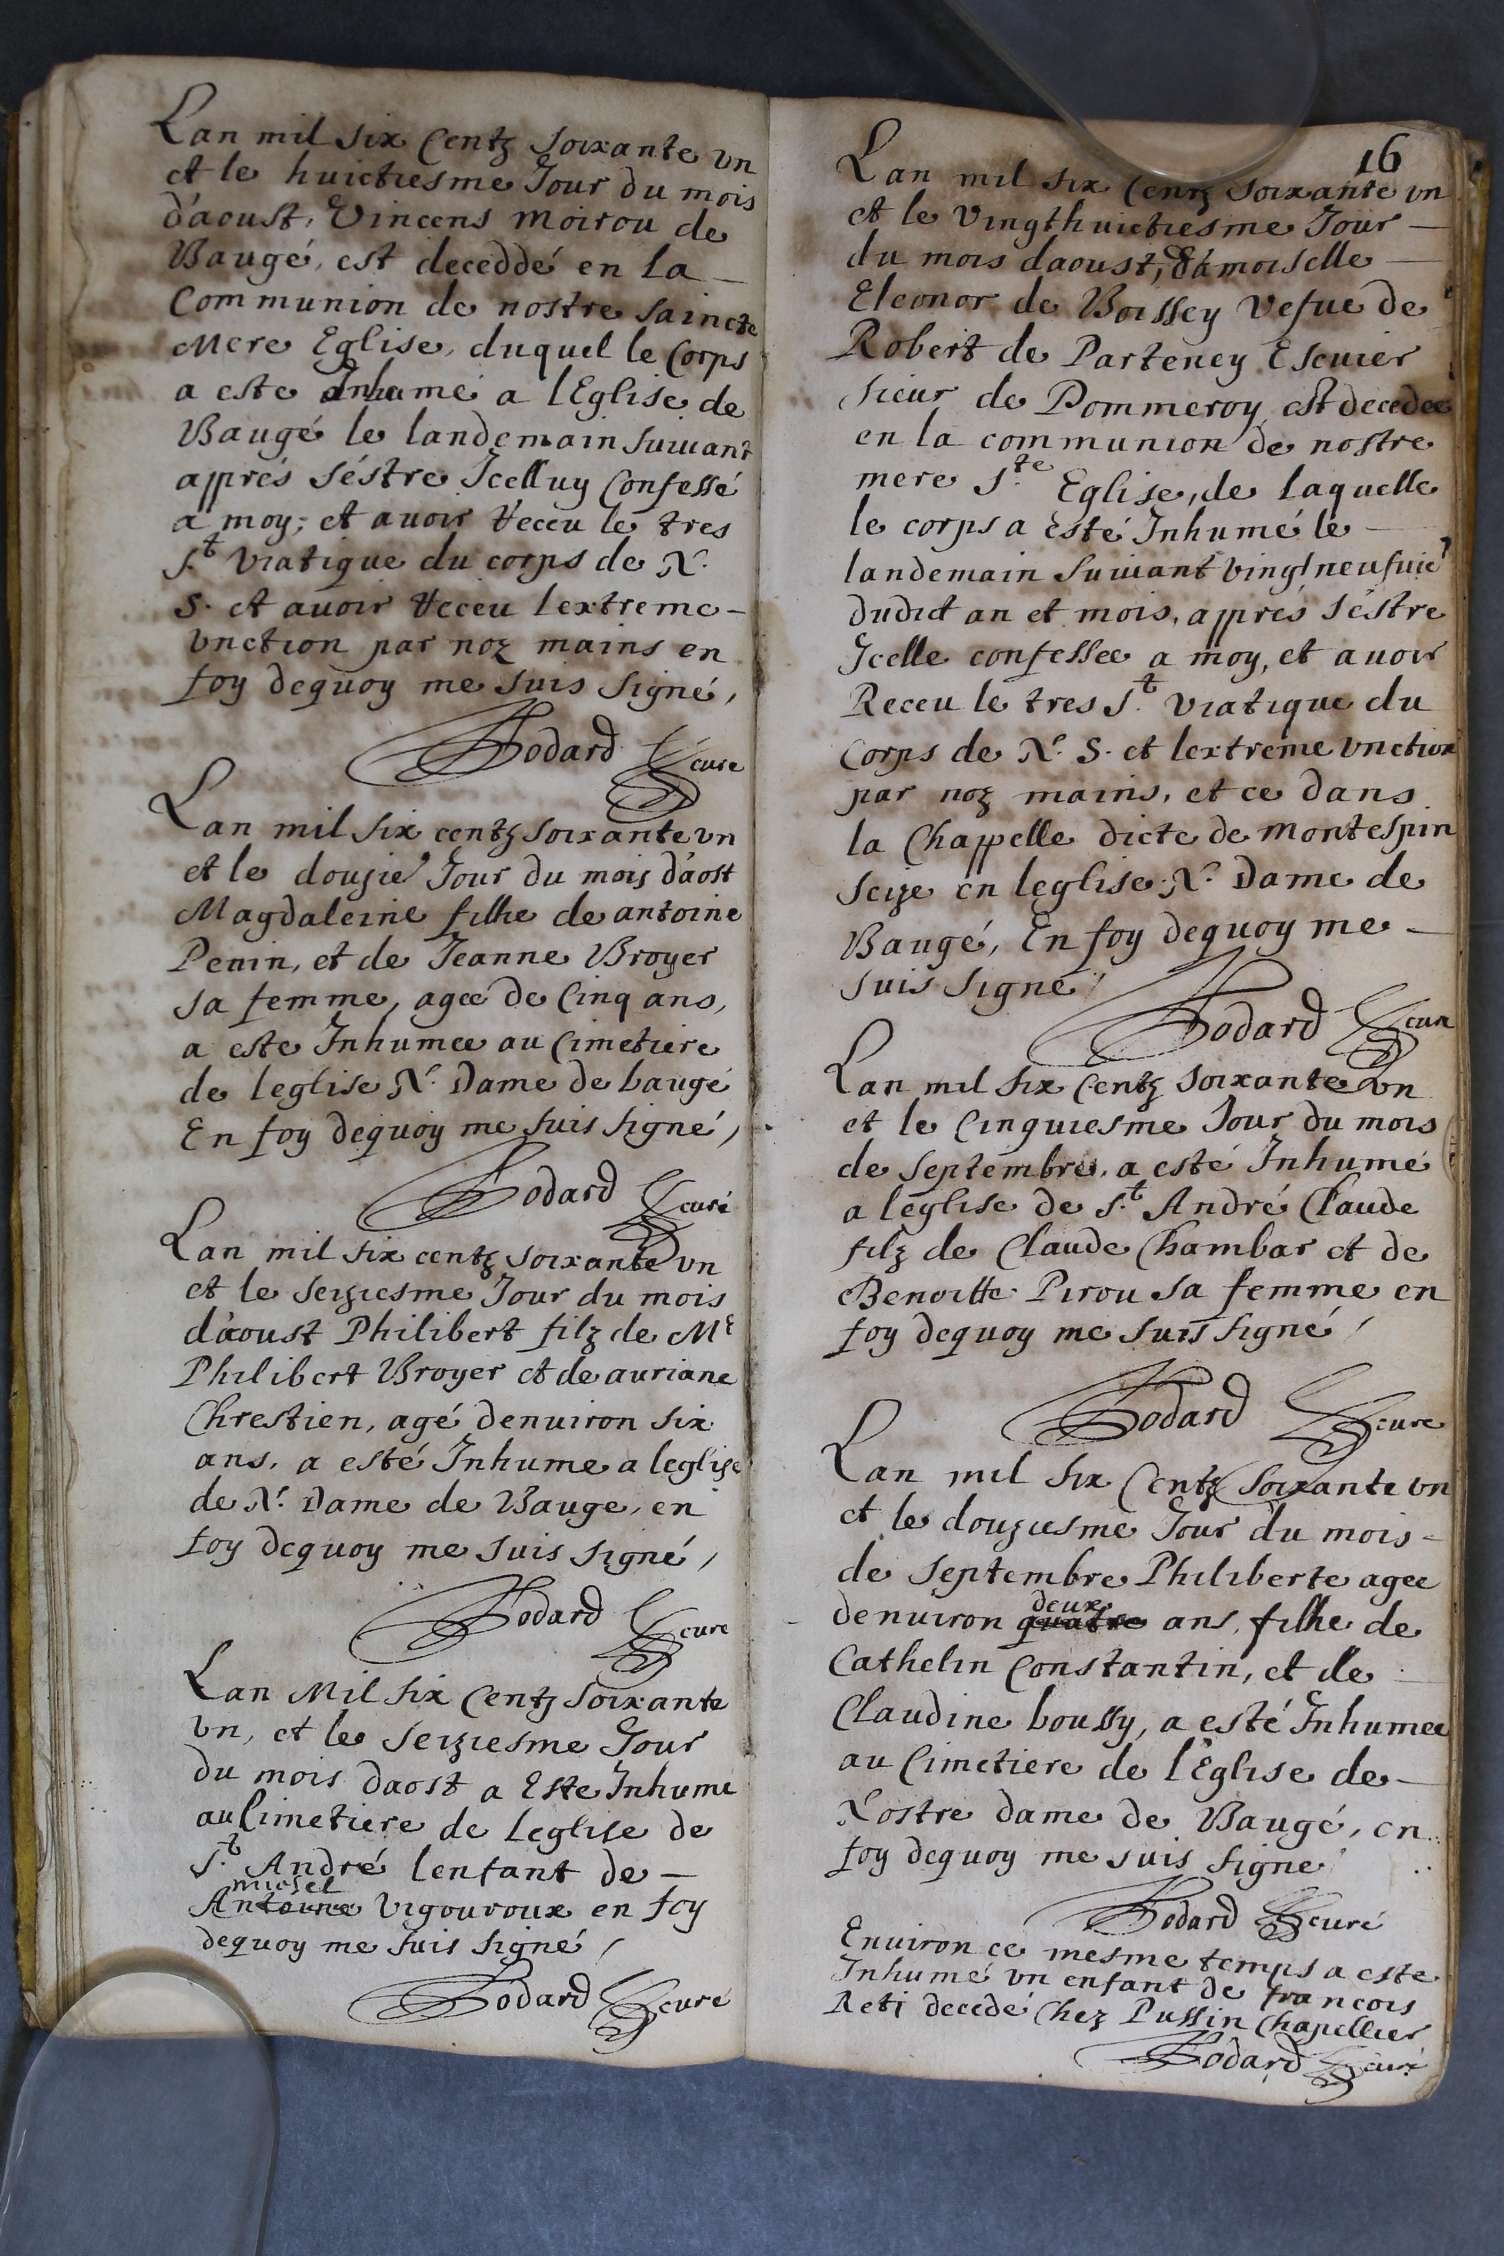 Lan mil six Centz soixante un
et le huictiesme Jour du mois
d'aoust, Vincens moirou de
Baugé, est deceddé en la
Communion de nostre saincte
Mere Eglise, duquel le Corps
a este Inhumé a lEglise de
Baugé le landemain suivant
apprés séstre Icelluy Confessé
a moy, et avoir receu le tres
St. Viatique du corps de N.
S. et avoir receu lextreme
unction par noz mains en
foy dequoy me suis signé,
Fodard curé
Lan mil six centz soixante un
et le douzie Jour du mois d'aost
Magdaleine filhe de antoine
Penin, et de Jeanne Broyer
sa femme, agee de Cinq ans,
a este Inhumee au Cimetiere
de leglise N. Dame de baugé
En foy dequoy me suis signé,
Fodard curé
Lan mil six centz soixante un
et le seiziesme Jour du mois
d'aoust Philibert filz de Me
Philibert Broyer et de auriane
Chrestien, agé denuiron six
ans, a esté Inhume a leglise
de N. Dame de Bauge, en
foy dequoy me suis signé,
Fodard curé
Lan Mil six Centz soixante
un, et le seiziesme Jour
du mois daost a Este Inhume
au Cimetiere de Leglise de
St. André lenfant de
michel
Antoine Vigouroux en foy
dequoy me suis signé,
Fodard curé
16
Lan mil six Centz soixante un
et le Vingthuictiesme Jour
du mois daoust, Damoiselle
Eleonor de Boissey Vefue de
Robert de Parteney Escuier
sieur de Pommeroy est decedee
en la communion de nostre
mere Ste. Eglise, de laquelle
le corps a Esté Inhumé le
landemain suivant vingt neufuie
dudict an et mois, apprés séstre
Icelle confessee a moy, et avoir
Receu le tres St. Viatique du
Corps de N. S. et lextreme unction
par noz mains, et ce dans
la Chappelle dicte de Montespin
seize en leglise N. Dame de
Baugé, En foy dequoy me
suis signé
Fodard curé
Lan mil six Centz soixante un
et le Cinquiesme Jour du mois
de Septembre, a esté Inhumé
a léglise de St. André Claude
filz de Claude Chambar et de
Benoitte Pirou sa femme en
foy dequoy me suis signé,
Fodard curé
Lan mil six Centz soixante un
et le douziesme Jour du mois
de Septembre Philiberte agee
deux
denuiron quatre ans, filhe de
Cathelin Constantin, et de
Claudine boussy, a esté Inhumee
au Cimetiere de l'Eglise de
Nostre dame de Baugé, en
foy dequoy me suis signe
Fodard curé
Environ ce mesme temps a este
Inhumé un enfant de francois
Reti decedé Chez Pussin Chapellier
Fodard curé